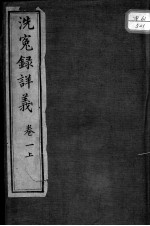 洗冤録詳義 卷一上